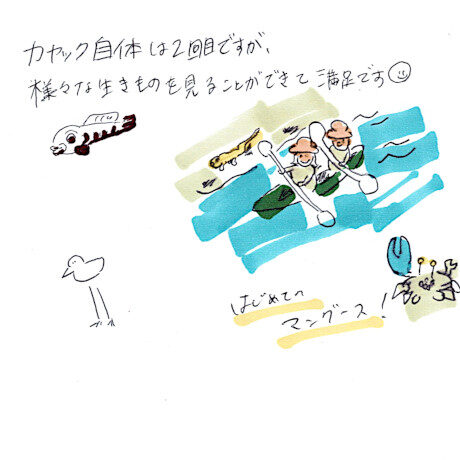 カヤック自体は2回目ですが、
様々な生きものを見ることができて満足です
はじめての
マングース!